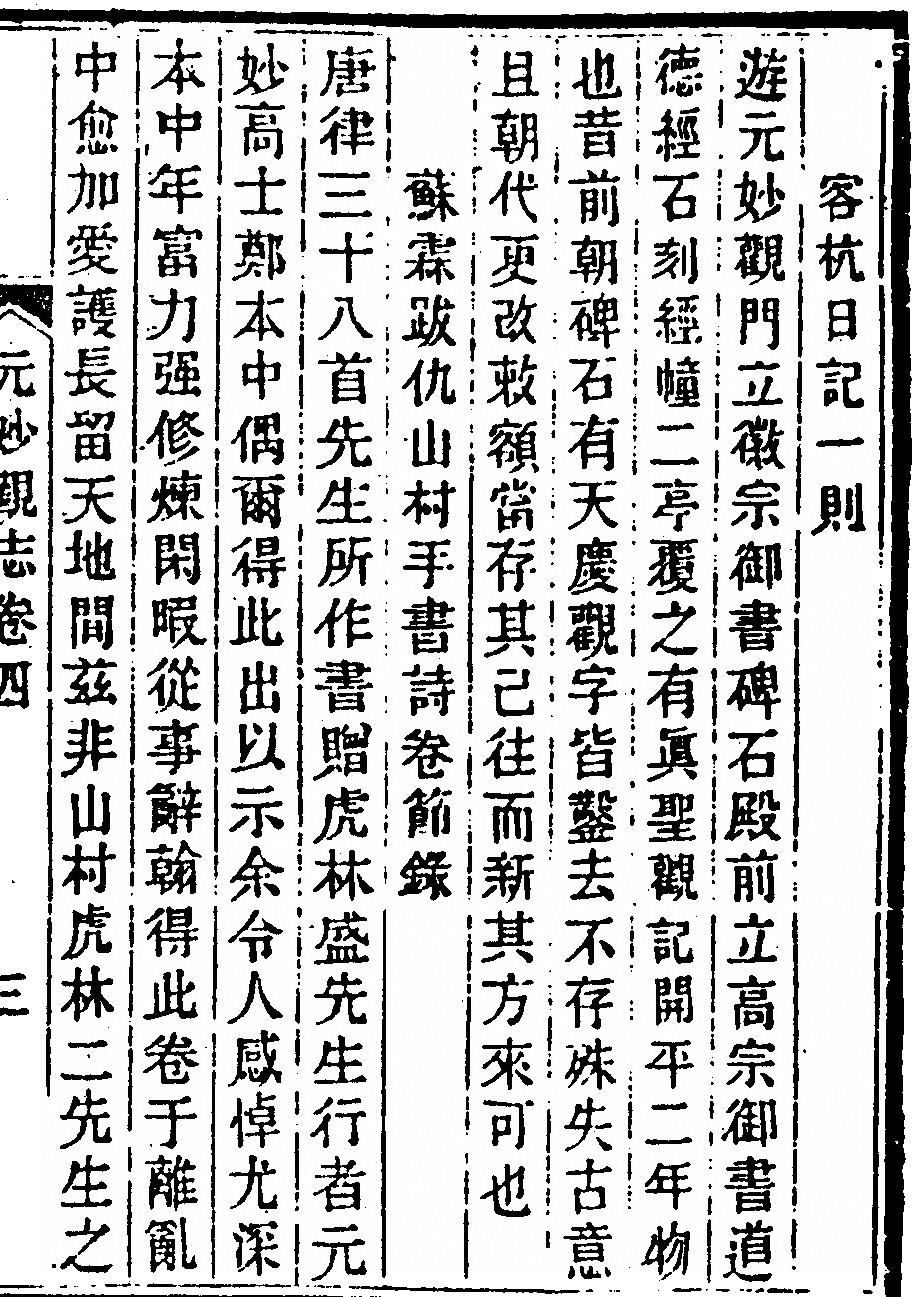 客杭日記一則
遊元妙觀門立徽宗御書碑石殿前立高宗御書道
德經石刻經幢二亭覆之有眞聖觀記開平二年物
也昔前朝碑石有天慶觀字皆鑿去不存殊失古意
且朝代更改敕額當存其已往而新其方來可也
蘇霖跋仇山村手書詩卷節錄
唐律三十八首先生所作書贈虎林盛先生行者元
妙高士鄭本中偶爾得此出以示余令人感悼尤深
本中年富力强修煉閑暇從事辭翰得此卷于離亂
中愈加愛護長留天地間茲非山村虎林二先生之
元妙觀志卷四
三